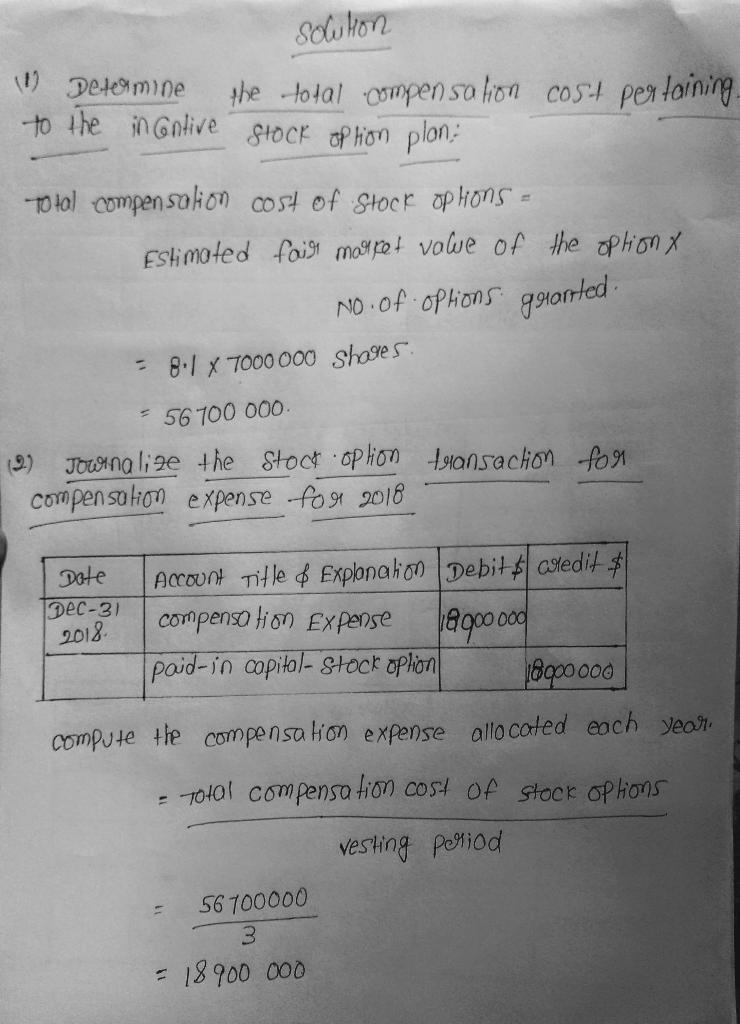 Solution
(1) Determine the total compensation cost pertaining
to the incentive stock option plan:
Total compensation cost of stock options =
Estimated fair market value of the option x
No. of options granted.
= 8.1 x 7000000 shares.
= 56700 000.
(2) Journalize the stock option transaction for
compensation expense for 2018
Date Account Title & Explanation Debit $ credit $
Dec-31 2018. compensation Expense 18900000
paid-in capital- stock option 18900000
compute the compensation expense allocated each year.
= Total compensation cost of stock options
vesting period
= 56700000
3
= 18900 000